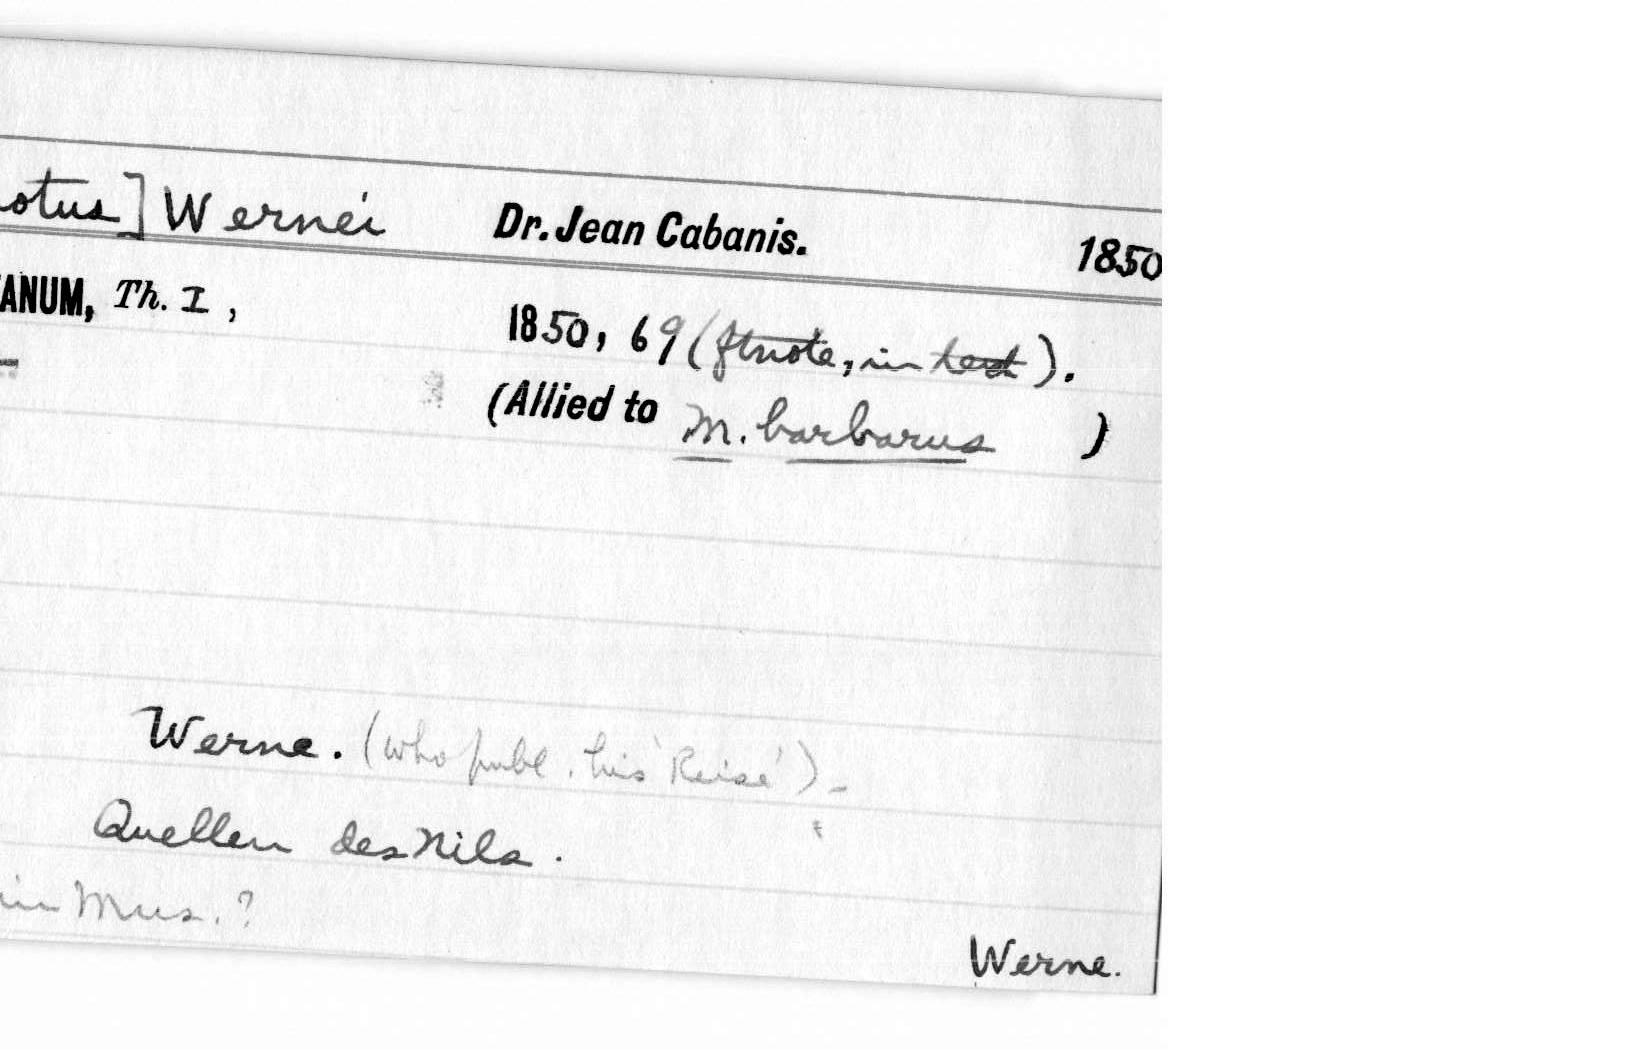 otus] Wernei Dr. Jean Cabanis. 1850
ANUM, Th. I, 1850, 69 (ftnote, in text).
(Allied to M. barbarus )
Werne. (who publ. his 'Reise')-
Quellen des Nils.
in Mus.?
Werne.